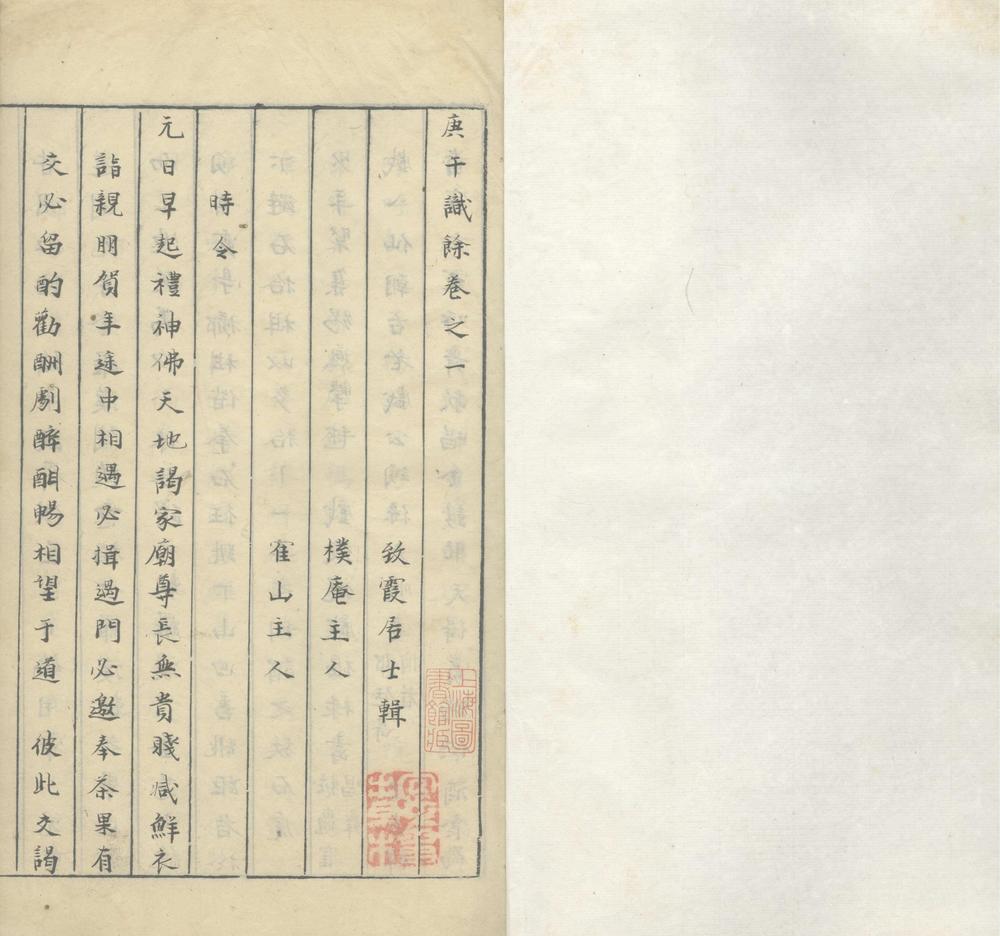 庚午識餘卷之一
致霞居士輯
樸庵主人
隺山主人
時令
元日早起禮神佛天地謁家廟尊長無貴賤咸鮮衣
詣親朋賀年途中相遇必揖過門必邀奉茶果有
交必留酌勸酬劇醉酣暢相望于道彼此交謁
上海圖書館藏